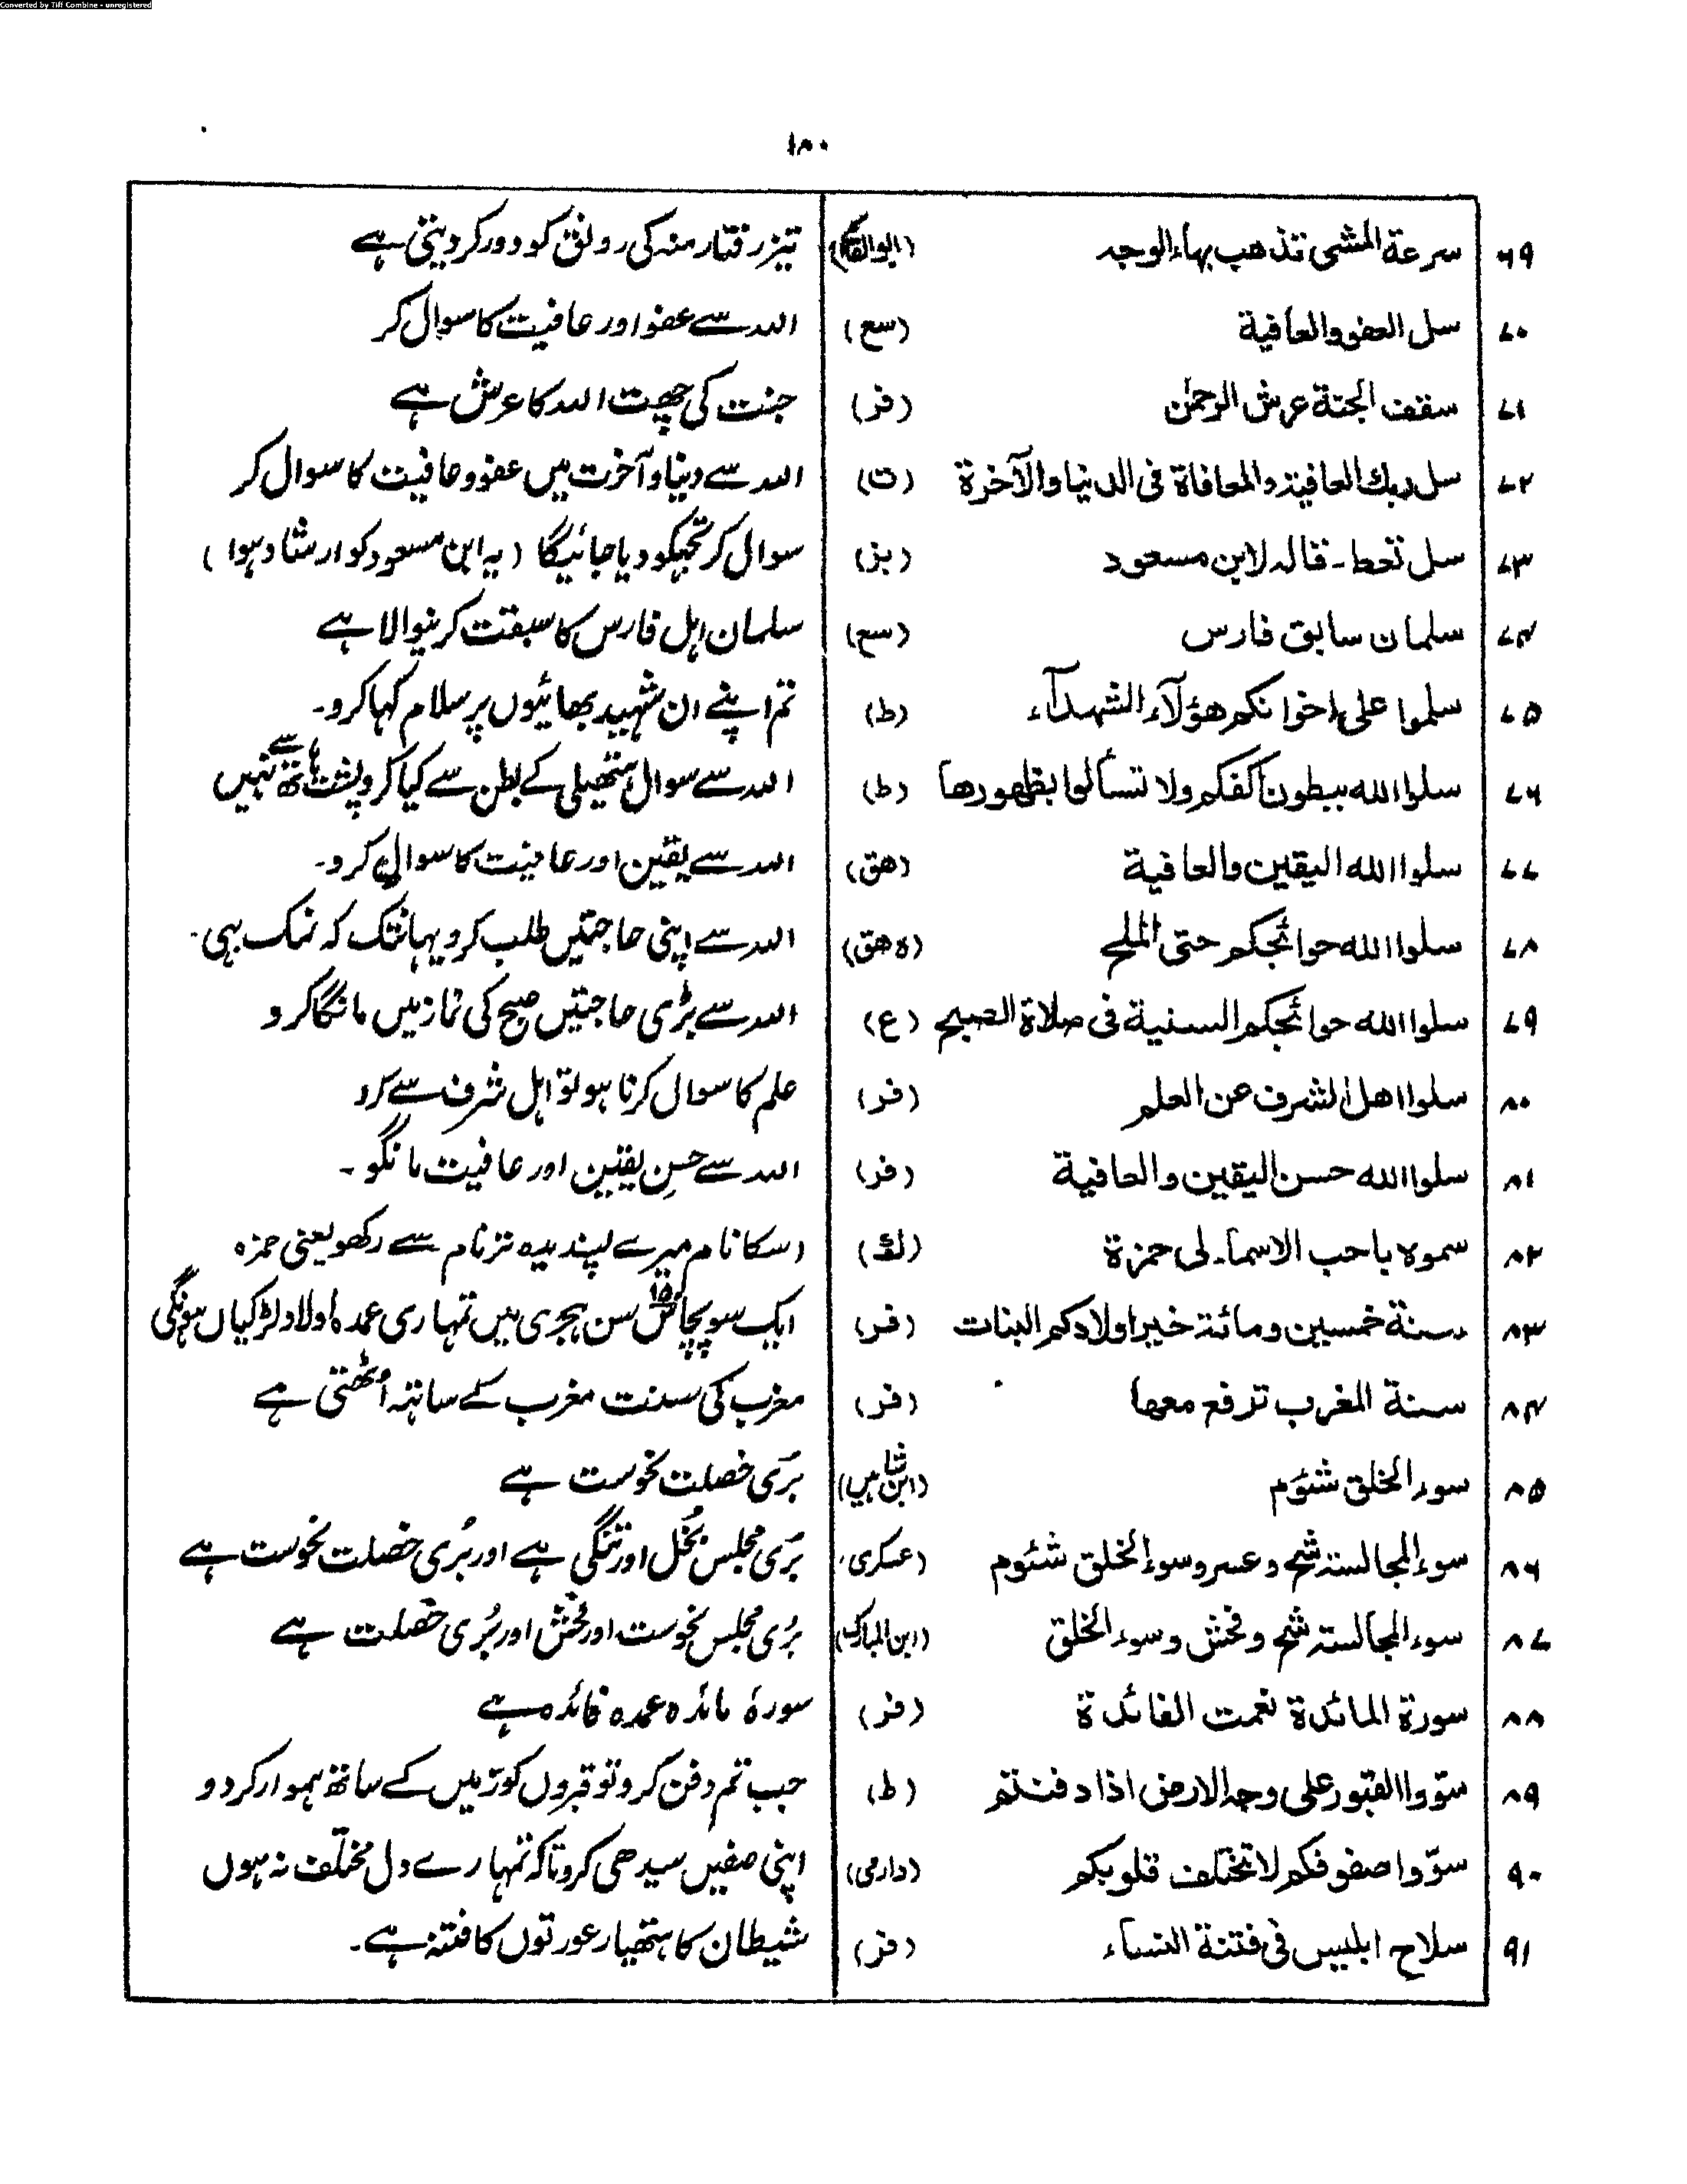 Converted by Tiff Combine - unregistered
۱۸۰
۶۹ سرعة المشی تذهب بهاء الوجه (ابوالقاسم) تیز رفتار منہ کی رونق کو دور کر دیتی ہے
۷۰ سل العفو والعافیة (سع) اللہ سے عفو اور عافیت کا سوال کر
۷۱ سقف الجنة عرش الرحمٰن (فر) جنت کی چھت اللہ کا عرش ہے
۷۲ سل ربك العافیة والمعافاة فی الدنیا والآخرة (ت) اللہ سے دنیا و آخرت میں عفو و عافیت کا سوال کر
۷۳ سل تعط ـ قاله لابن مسعود (بز) سوال کر تجھکو دیا جائیگا (یہ ابن مسعود کو ارشاد ہوا)
۷۴ سلمان سابق فارس (سع) سلمان اہل فارس کا سبقت کرنیوالا ہے
۷۵ سلموا علی اخوانکم هؤلآء الشهدآء (ط) تم اپنے ان شہید بھائیوں پر سلام کہا کرو۔
۷۶ سلوا الله ببطون اکفکم ولا تسألوا بظهورها (ط) اللہ سے سوال ہتھیلی کے بطن سے کیا کرو پشت ہاتھ سے نہیں
۷۷ سلوا الله الیقین والعافیة (هق) اللہ سے یقین اور عافیت کا سوال کرو۔
۷۸ سلوا الله حوائجکم حتی الملح (ه هق) اللہ سے اپنی حاجتیں طلب کرو یہانتک کہ نمک بہی۔
۷۹ سلوا الله حوائجکم السنیة فی صلاة الصبح (ع) اللہ سے بڑی حاجتیں صبح کی نماز میں مانگا کرو
۸۰ سلوا اهل الشرف عن العلم (فر) علم کا سوال کرنا ہو تو اہل شرف سے کرو
۸۱ سلوا الله حسن الیقین والعافیة (فر) اللہ سے حسنِ یقین اور عافیت مانگو۔
۸۲ سموه باحب الاسماء لی حمزة (ك) اسکا نام میرے پسندیدہ تر نام سے رکھو یعنی حمزہ
۸۳ سنة خمسین ومائة خیر اولادکم البنات (فر) ایک سو پچاس ۱۵۰ سن ہجری میں تمہاری عمدہ اولاد لڑکیاں ہونگی
۸۴ سنة المغرب ترفع معها (فر) مغرب کی سنت مغرب کے ساتہ اُٹھتی ہے
۸۵ سوء الخلق شئوم (ابن شاہین) بری خصلت نحوست ہے
۸۶ سوء المجالسة شح وعسر وسوء الخلق شئوم (عسکری) بری مجلس بُخل اور تنگی ہے اور بُری خصلت نحوست ہے
۸۷ سوء المجالسة شح وفحش وسوء الخلق (ابن المبارک) بُری مجلس نحوست اور فحش اور بُری خصلت ہے
۸۸ سورة المائدة نعمت الفائدة (فر) سورۂ مائدہ عمدہ فائدہ ہے
۸۹ سوّوا القبور علی وجه الارض اذا دفنتم (ط) جب تم دفن کرو تو قبروں کو زمیں کے ساتھ ہموار کردو
۹۰ سوّوا صفوفکم لا تختلف قلوبکم (دارمی) اپنی صفیں سیدھی کرو تاکہ تمہارے دل مختلف نہ ہوں
۹۱ سلاح ابلیس فی فتنة النساء (فر) شیطان کا ہتھیار عورتوں کا فتنہ ہے۔